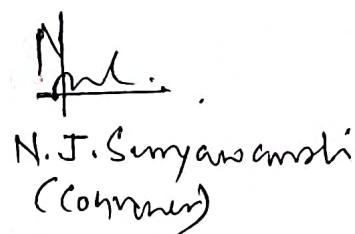 N. J. Suryawanshi
(Convener)